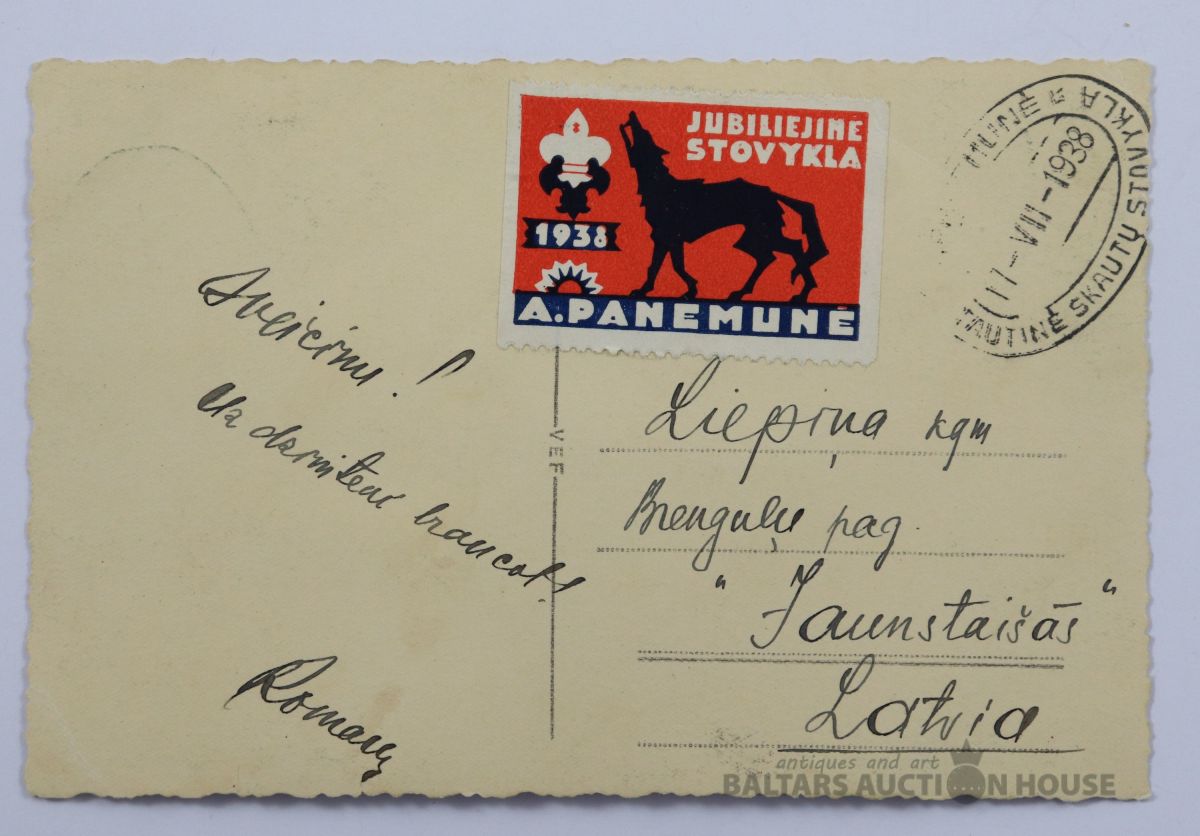 JUBILIEJINĖ
STOVYKLA
1938
A. PANEMUNĖ
TAUTINĖ SKAUTŲ STOVYKLA
MUNĖ
17-VII-1938
Sveiciens!
Uz
VEF
Liepiņa kgm
Breng­uļu pag.
"Jaunstaišās"
Latvia
antiques and art
BALTARS AUCTION HOUSE